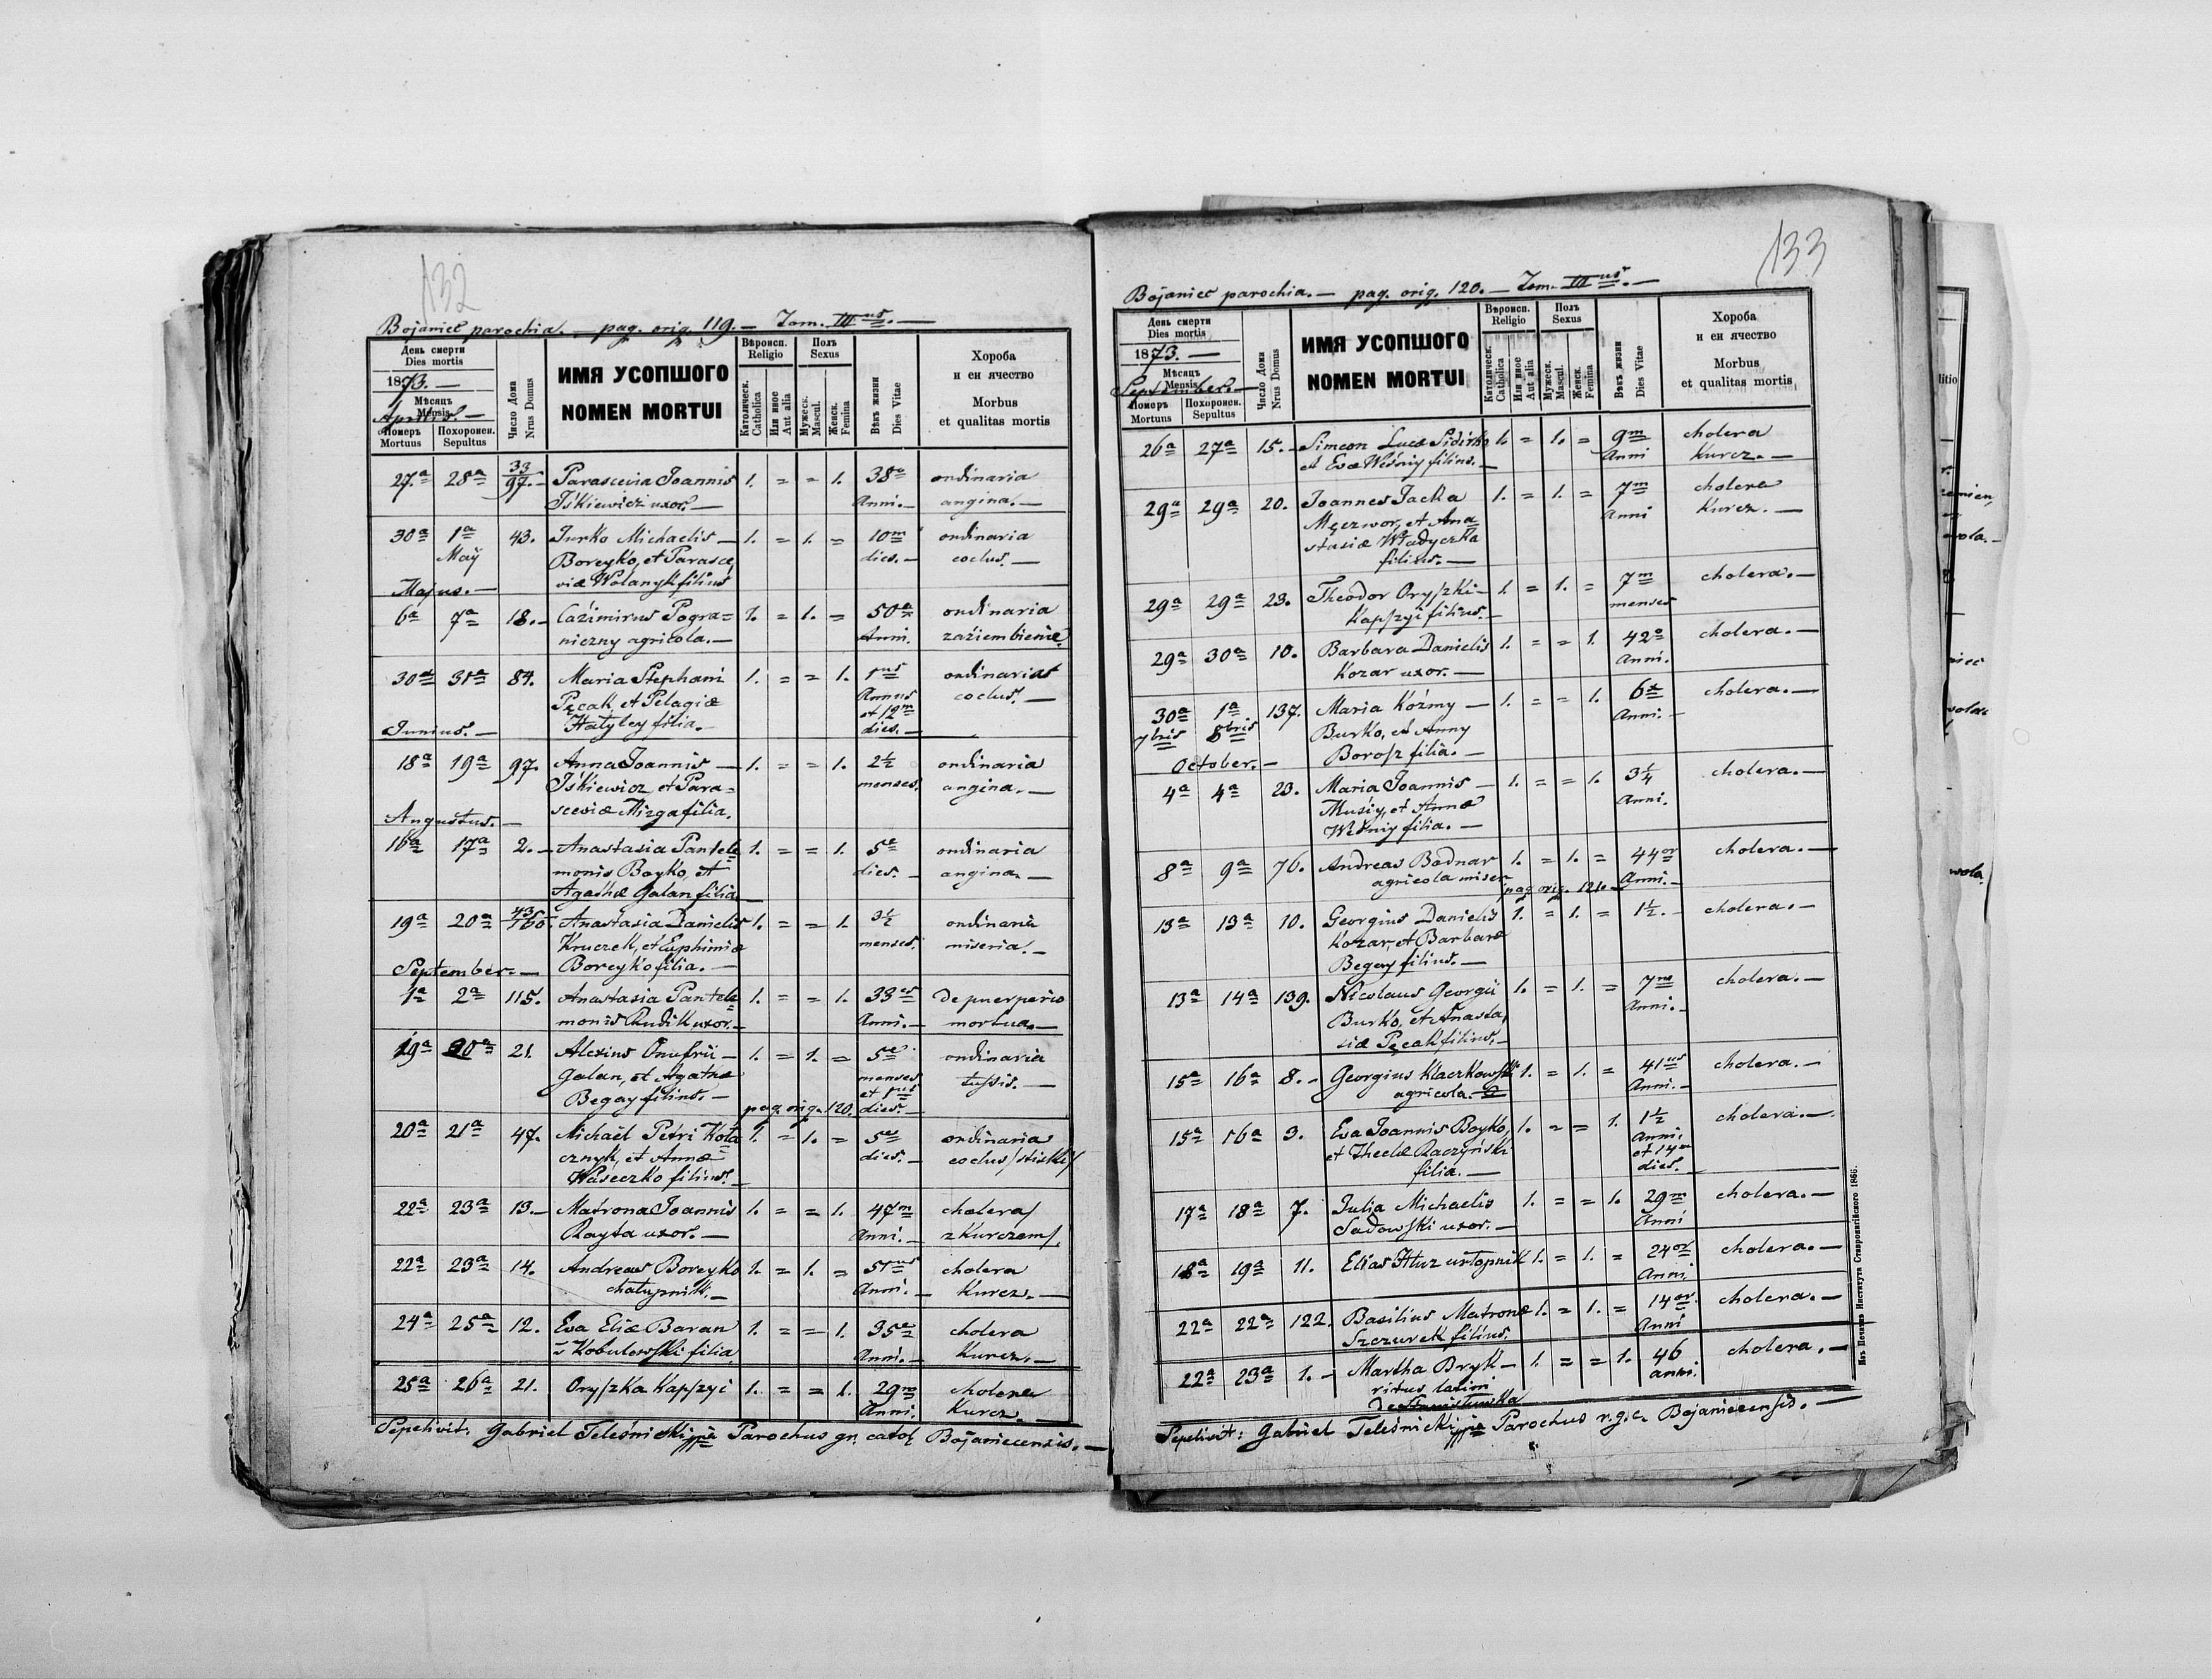 132
Bojaniec parochia. — pag. orig. 119. — Tom. III us. —
День смерти
Dies mortis
1873. —
Мѣсяцъ
Mensis
Aprilis. —
Померъ
Mortuus
Похоронен.
Sepultus
Число Дома
Nrus Domus
ИМЯ УСОПШОГО
NOMEN MORTUI
Вѣроисп.
Religio
Католическ.
Catholica
Или иное
Aut alia
Полъ
Sexus
Мужеск.
Mascul.
Женск.
Femina
Вѣкъ жизни
Dies Vitae
Хороба
и еи ячество
Morbus
et qualitas mortis
27.a 28a 33/97. Parascevia Joannis 1. = = 1. 38a ordinaria
Iśkiewicz uxor. — Anni. — angina. —
30a 1a 43. Jurko Michaelis — 1. = 1. = 10m ordinaria
Maij Boreyko, et Parasce, dies. — coclus. —
viæ Wolanyk filius
Majus. —
6a 7a 18. — Cazimirus Pogra= 1. = 1. = 50a ordinaria
niczny agricola. — Anni. zaziembienie
30a 31a 84. Maria Stephani 1. = = 1. 1us ordinarius
Pęcak, et Pelagiæ Annus coclus. —
Hatyley filia. — et 12m
dies. —
Junius. —
18a 19a 97. Anna Joannis — 1. = = 1. 2½ ordinaria
Iśkiewicz et Para= menses. angina. —
sceviæ Mizga filia.
Augustus. —
16a 17a 2. — Anastasia Pantele 1. = = 1. 5e ordinaria
monis Boyko, et dies. — angina. —
Agathæ Galan filia
19a 20a 43/160. Anastasia Danielis 1. = = 1. 3½ ordinaria
Kruczek, et Euphimiæ menses. miseria. —
Boreyko filia. —
September. —
1a 2a 115. Anastasia Pantele 1. = = 1. 33es De puerperio
monis Rudik uxor. — Anni. — mortua. —
19a 20a 21. Alexius Onufrii — 1. = 1. = 5e ordinaria
Galan, et Agathæ menses tussis. —
Begay filius. — et 1us
pag. orig. 120. dies. —
20a 21a 47. Michael Petri Kola 1. = 1. = 5es ordinarius
cznyk, et Annæ dies. — coclus/stiski/
Waseczko filius. —
22a 23a 13. — Matrona Joannis 1. = = 1. 47m cholera/
Rayta uxor. — Anni. — z Kurczem/.
22a 23a 14. Andreas Boreyko 1. = 1. = 51us cholera
chałupnik. — Anni. — Kurcz. —
24a 25a 12. Eva Eliæ Baran 1. = = 1. 35e cholera
v Kobulowski filia. Anni. — Kurcz. —
25a 26a 21. Oryszka Kapszyi 1. = = 1. 29m cholera
Anni. Kurcz. —
Sepelivit: Gabriel Teleśnicki Parochus gr. catol Bojaniecensis. —
133
Bojaniec parochia. — pag. orig. 120. — Tom. III us. —
День смерти
Dies mortis
1873. —
Мѣсяцъ
Mensis
September. —
Померъ
Mortuus
Похоронен.
Sepultus
Число Дома
Nrus Domus
ИМЯ УСОПШОГО
NOMEN MORTUI
Вѣроисп.
Religio
Католическ.
Catholica
Или иное
Aut alia
Полъ
Sexus
Мужеск.
Mascul.
Женск.
Femina
Вѣкъ жизни
Dies Vitae
Хороба
и еи ячество
Morbus
et qualitas mortis
26a 27a 15. — Simeon Lucæ Sidirko 1. = 1. = 9m cholera
et Evæ Weśniy filius. — Anni Kurcz. —
29a 29a 20. Joannes Jacka 1. = 1. = 7m cholera
Męczwor, et Ana Anni Kurcz. —
stasiæ Władyczka
filius. —
29a 29a 23. Theodor Oryszki — 1. = 1. = 7m cholera. —
Kapszyi filius. — menses
29a 30a 10. Barbara Danielis 1. = = 1. 42o cholera. —
Kozar uxor. — Anni.
30a 1a 137. Maria Kóżmy — 1. = = 1. 6x cholera. —
7bris 8bris Burko, et Anny Anni. —
Borosz filia. —
October. —
4a 4a 23. Maria Joannis — 1. = = 1. 3¼ cholera. —
Musiy, et Annæ Anni.
Weśniy filia. —
8a 9a 76. Andreas Bodnar 1. = 1. = 44or cholera. —
agricola miser Anni. —
pag. orig. 121. —
13a 13a 10. Georgius Danielis 1. = 1. = 1½. — cholera. —
Kozar, et Barbaræ
Begay filius. —
13a 14a 139. Nicolaus Georgii 1. = 1. = 7m cholera. —
Burko, et Anasta, Anni. —
siæ Pęcak filius. —
15a 16a 8. — Georgius Klaczkowski 1. = 1. = 41us cholera. —
agricola. — Anni. —
15a 16a 3. Eva Joannis Boyko, 1. = = 1. 1½ cholera. —
et Theclæ Raczyński Anni.
filia. — et 14or
dies. —
17a 18a 7. Julia Michaelis 1. = = 1. 29m cholera. —
Sadowski uxor. — Anni
18a 19a 11. Elias Huz urlopnik 1. = 1. = 24or cholera. —
Anni.
22a 22a 122. Basilius Matronæ 1. = 1. = 14or. cholera. —
Szczurek filius. Anni
22a 23a 1. — Martha Bryk — 1. = = 1. 46 cholera. —
ritus latini anni.
Sepelivit: Gabriel Teleśnicki Parochus r.g.c. Bojaniecensis. —
Изъ Печатни Института Ставропигійского 1866.